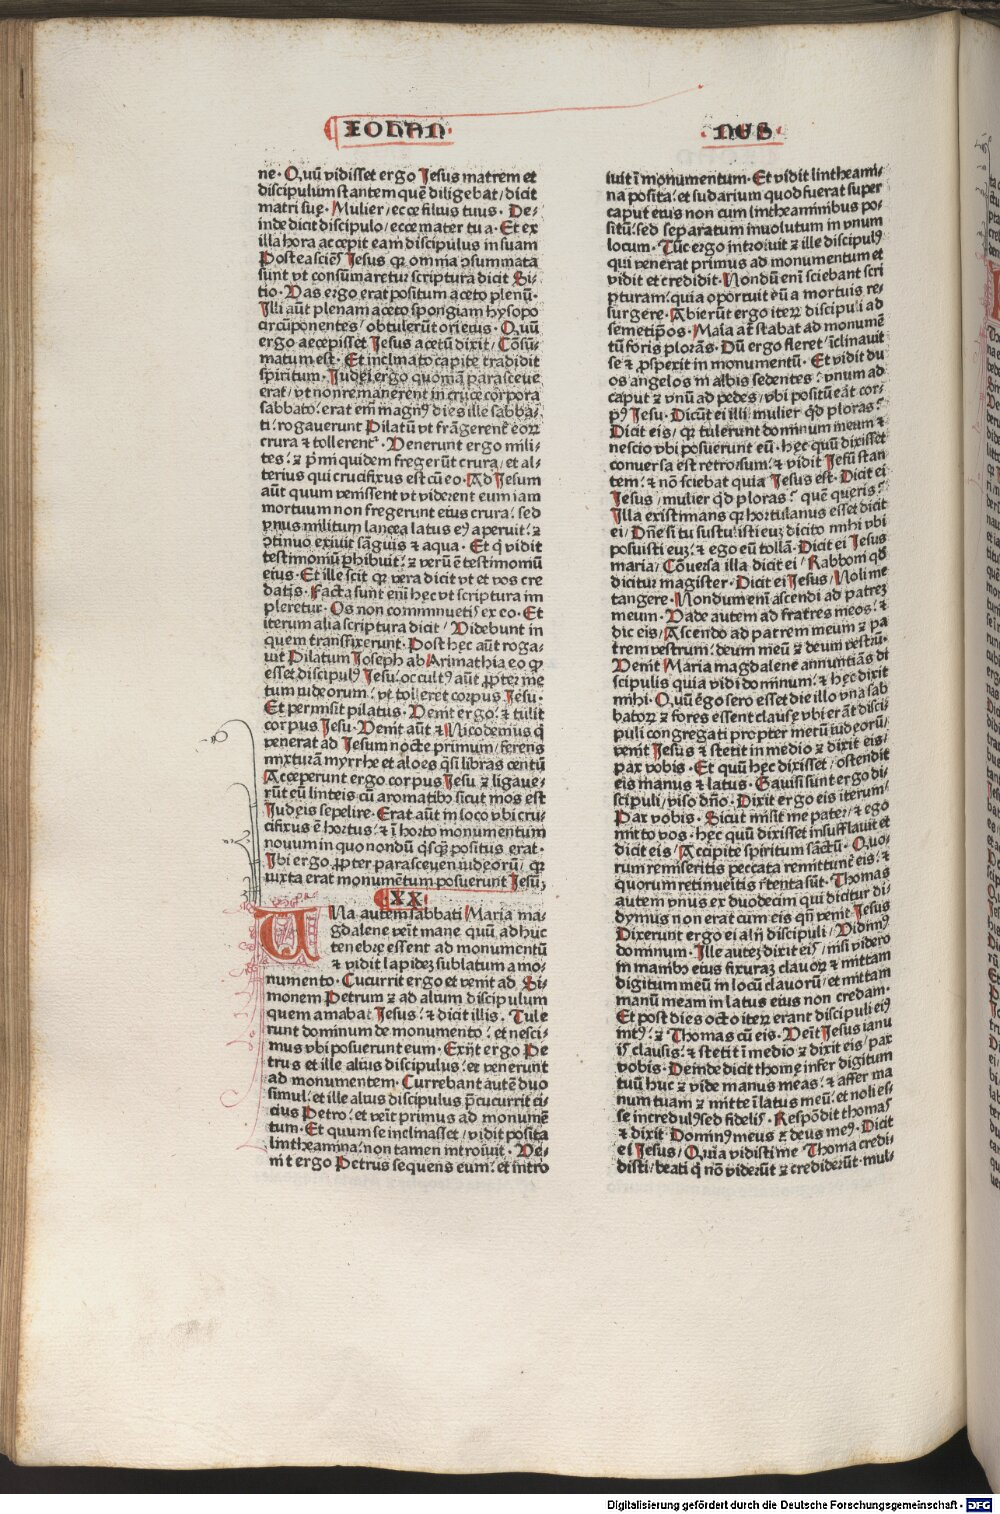 IOHAN
NES
ne· Quū vidisset ergo Jesus matrem et
discipulum stantem quē diligebat/dicit
matri suę· Mulier/ecce filius tuus· De-
inde dicit discipulo/ecce mater tua· Et ex
illa hora accepit eam discipulus in suam
Postea sciēs Jesus qꝛ omnia ꝯsummata
sunt vt consūmaretur scriptura dicit Si-
tio· Vas ergo erat positum aceto plenū·
Illi aūt plenam aceto spongiam hysopo
circūponentes/obtulerūt ori eius· Quū
ergo accepisset Jesus acetū dixit/Cōsū-
matum est· Et inclinato capite tradidit
spiritum· Judei ergo quoniā parasceue
erat/vt non remanerent in cruce corpora
sabbato: erat em̄ magnꝰ dies ille sabba-
ti: rogauerunt Pilatū vt frāgerent̄ eoꝝ
crura & tollerent̄· Venerunt ergo mili-
tes: ⁊ p̄mi quidem fregerūt crura/et al-
terius qui crucifixus est cū eo· Ad Jesum
aūt quum venissent vt viderent eum iam
mortuum non fregerunt eius crura: sed
vnus militum lancea latus eꝰ aperuit: ⁊
ꝯtinuo exiuit sāguis & aqua· Et q̇ vidit
testimoniū ꝑhibuit: ⁊ verū ē testimoniū
eius· Et ille scit qꝛ vera dicit vt et vos cre
datis· Facta sunt eni hęc vt scriptura im
pleretur· Os non comminuetis ex eo· Et
iterum alia scriptura dicit/Videbunt in
quem transfixerunt· Post hęc aūt roga-
uit Pilatum Joseph ab Arimathia eo qꝙ
esset discipulꝰ Jesu: occultꝰ aūt ꝓpter me
tum iudeorum: vt tolleret corpus Jesu·
Et permisit pilatus· Venit ergo: & tulit
corpus Jesu· Venit aūt & Nicodemus q̇
venerat ad Jesum nocte primum/ferens
mixturā myrrhe et aloes q̄si libras centū
Acceperunt ergo corpus Jesu ⁊ ligaue-
rūt eū linteis cū aromatibꝫ sicut mos est
Judeis sepelire· Erat aūt in loco vbi cru-
cifixus ē hortus: & ī horto monumentum
nouum in quo nondū q̇sq̄ positus erat·
Ibi ergo ꝓpter parasceuen iudeorū/qꝛ
iuxta erat monumētum posuerunt Jesū·
XX
UNa autem sabbati Maria ma-
gdalene veīt mane quū adhuc
tenebrę essent ad monumentū
& vidit lapideꝫ sublatum a mo-
numento· Cucurrit ergo et venit ad Si-
monem Petrum ⁊ ad alium discipulum
quem amabat Jesus: & dicit illis· Tule
runt dominum de monumento: et nesci-
mus vbi posuerunt eum· Exijt ergo Pe
trus et ille alius discipulus: et venerunt
ad monumentem· Currebant autē duo
simul: et ille alius discipulus p̄cucurrit ci-
cius Petro: et veīt primus ad monumē
tum· Et quum se inclinasset/vidit posita
linteamina: non tamen introiuit· Ve-
nit ergo Petrus sequens eum: et intro
iuit ī monumentum· Et vidit linteami-
na posita: et sudarium quod fuerat super
caput eius non cum linteaminibus po-
sitū: sed separatum inuolutum in vnum
locum· Tūc ergo introiuit ⁊ ille discipulꝰ
qui venerat primus ad monumentum et
vidit et credidit· Nondū enī sciebant scri
pturam: quia oportuit eū a mortuis re-
surgere· Abierūt ergo iteꝝ discipuli ad
semetip̄os· Maīa at̄ stabat ad monumē
tū foris plorās· Dū ergo fleret/īclinauit
se & ꝓspexit in monumentū· Et vidit du
os angelos in albis sedentes: vnum ad
caput ⁊ vnū ad pedes/vbi positū eāt cor-
pꝰ Jesu· Dicūt ei illi: mulier qͥd ploras?
Dicit eis/qꝛ tulerunt dominum meum &
nescio vbi posuerunt eū· hęc quū dixisset
conuersa est retrorsum: & vidit Jesū stan
tem: & nō sciebat quia Jesus est· Dicit ei
Jesus/mulier qͥd ploras? quē queris?
Illa existimans qꝛ hortulanus esset dicit
ei/Dn̄e si tu sustulisti euꝫ dicito mihi vbi
posuisti euꝫ: & ego eū tollā· Dicit ei Jesus
maria/Cōuersa illa dicit ei/Rabboni qd̄
dicitur magister· Dicit ei Jesus/Noli me
tangere· Nondum enī ascendi ad patreꝫ
meum· Vade autem ad fratres meos: &
dic eis/Ascendo ad patrem meum ⁊ pa
trem vestrum: deum meū ⁊ deum vestrū·
Venit Maria magdalene annuntiās di
scipulis quia vidi dominum: & hęc dixit
mihi· Quū ergo sero esset die illo vna sab
batoꝝ ⁊ fores essent clausę vbi erāt disci
puli congregati propter metū iudeorū/
venit Jesus & stetit in medio ⁊ dixit eis/
Pax vobis· Et quū hęc dixisset/ostendit
eis manus & latus· Gauisi sunt ergo di-
scipuli/viso dn̄o· Dixit ergo eis iterum/
Pax vobis· Sicut misit me pater/& ego
mitto vos· hęc quū dixisset insufflauit et
dicit eis/Accipite spiritum sanctū· Quo-
rum remiseritis peccata remittunt̄ eis: &
quorum retinueritis r̄tenta sūt· Thomas
autem vnus ex duodecim qui dicitur di-
dymus non erat cum eis qn̄ venit Jesus
Dixerunt ergo ei alij discipuli/Vidimꝰ
dominum· Ille auteꝫ dixit eis/nisi videro
in manibꝫ eius fixuraꝫ clauoꝝ & mittam
digitum meū in locū clauorū/et mittam
manū meam in latus eius non credam·
Et post dies octo iteꝝ erant discipuli eiꝰ
intꝰ: ⁊ Thomas cū eis· Veīt Jesus ianu
is clausis: & stetit ī medio ⁊ dixit eis/pax
vobis· Deinde dicit thomę infer digitum
tuū huc ⁊ vide manus meas: & affer ma
num tuam ⁊ mitte ī latus meū: et noli es-
se incredulꝰ sed fidelis· Respōdit thomas
& dixit· Dominꝰ meus ⁊ deus meꝰ· Dicit
ei Jesus/Quia vidisti me Thoma credi-
disti/beati q̇ nō viderūt ⁊ crediderūt· mul-
Digitalisierung gefördert durch die Deutsche Forschungsgemeinschaft - DFG